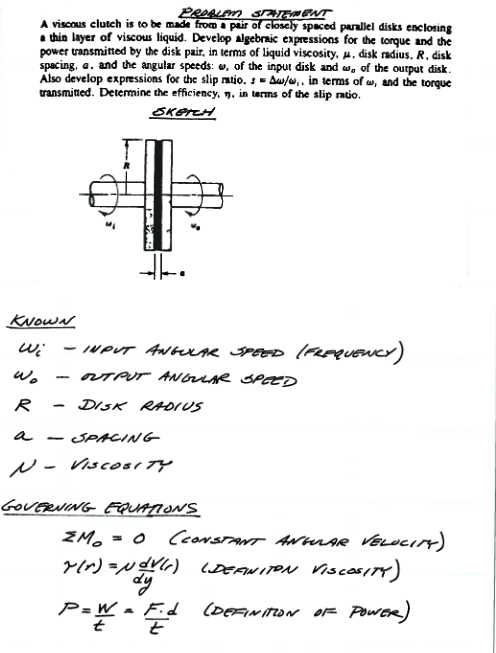 PROBLEM STATEMENT
A viscous clutch is to be made from a pair of closely spaced parallel disks enclosing
a thin layer of viscous liquid. Develop algebraic expressions for the torque and the
power transmitted by the disk pair, in terms of liquid viscosity, μ, disk radius, R, disk
spacing, a, and the angular speeds: ωi of the input disk and ωo of the output disk.
Also develop expressions for the slip ratio, s = Δω/ωi, in terms of ωi and the torque
transmitted. Determine the efficiency, η, in terms of the slip ratio.
SKETCH
R
ωi
ωo
a
KNOWN
ωi - INPUT ANGULAR SPEED (FREQUENCY)
ωo - OUTPUT ANGULAR SPEED
R - DISK RADIUS
a - SPACING
μ - VISCOSITY
GOVERNING EQUATIONS
ΣMo = 0 (CONSTANT ANGULAR VELOCITY)
τ(r) = μ dV(r)/dy (DEFINITON VISCOSITY)
P = W/t = F·d/t (DEFINITION OF POWER)